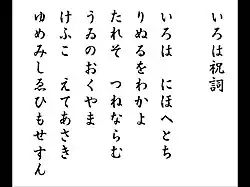 いろは祝詞
いろは　にほへとち
りぬるをわかよ
たれそ　つねならむ
うゐのおくやま
けふこ　えてあさき
ゆめみしゑひもせすん